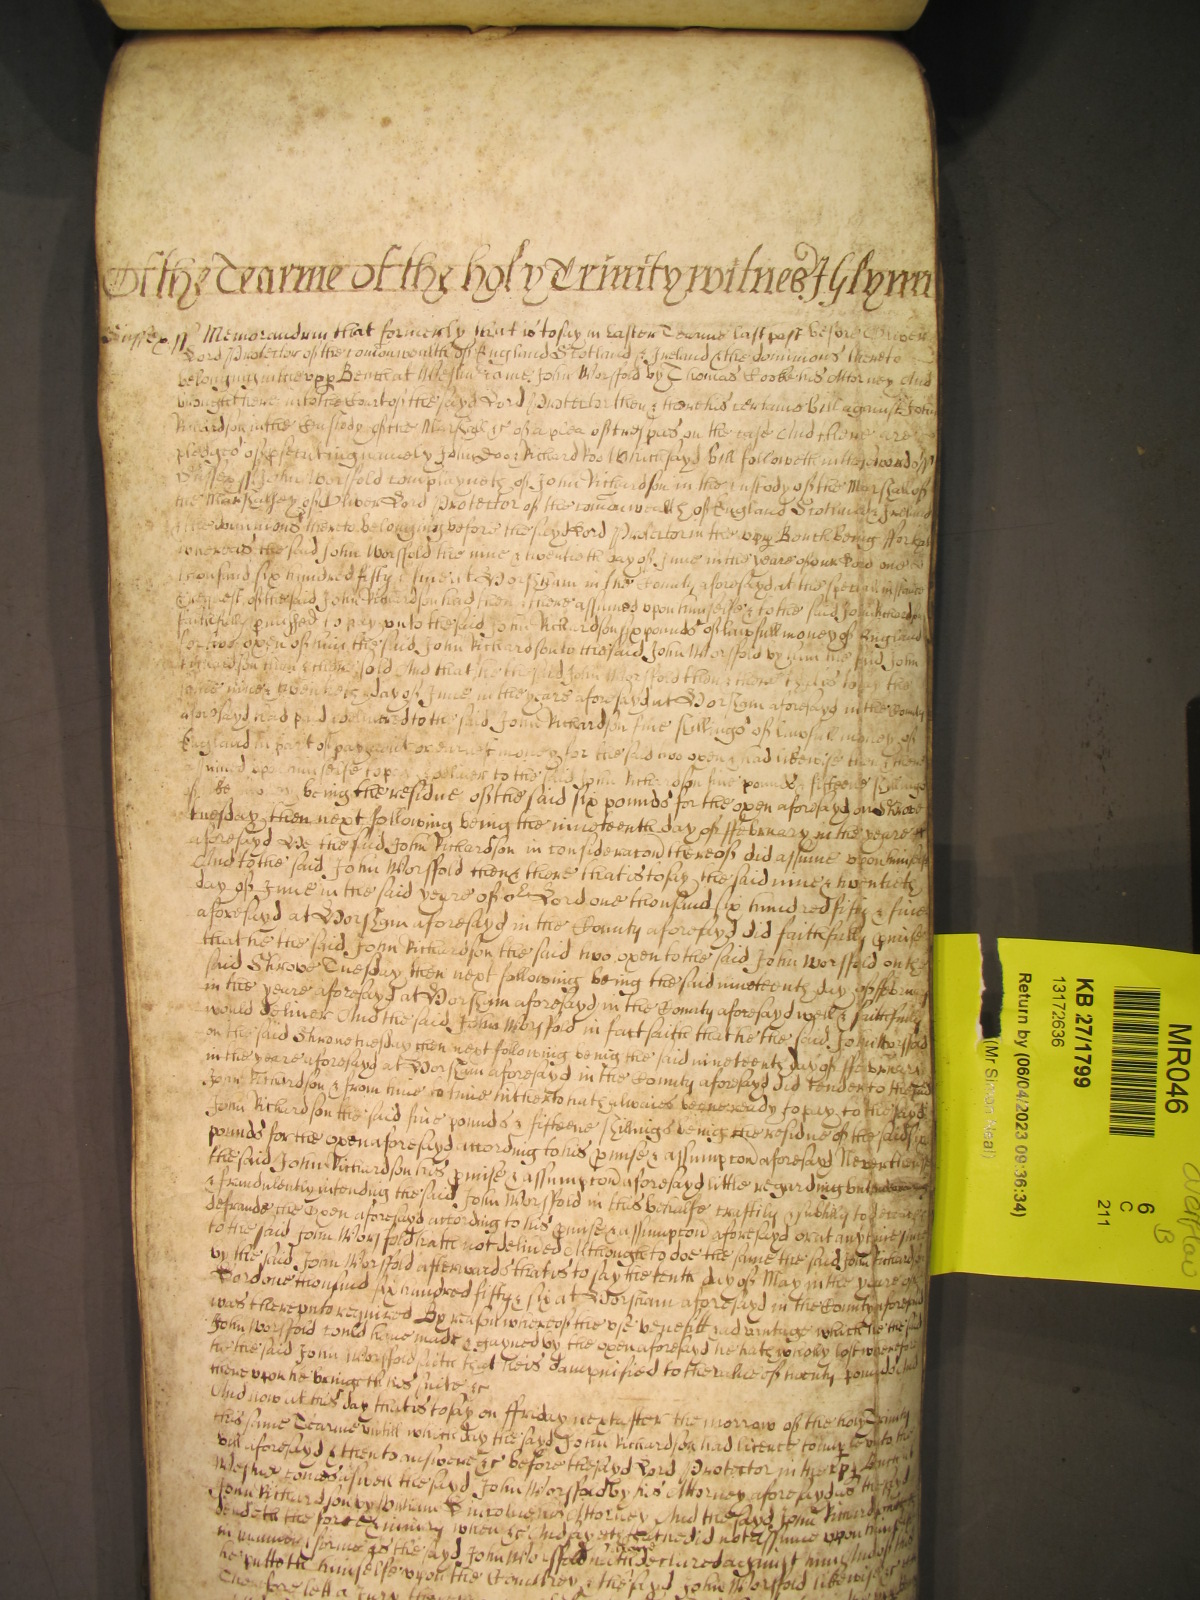 Of the Tearme of the holy Trinity witnes J Glynn
Sussex ss Memorandum that formerly that is to say in Easter Tearme last past before Oliver
Lord Protector of the Comonwealth of England Scotland & Ireland & the dominions thereto
belonging in the upp Bench at Westm came John Worsfold by Thomas his Attorney And
brought here into the Court of the sayd Lord Protector then & there his certaine bill against John
Richardson in the Custody of the Marshall &c of a plea of trespas on the case And there are
pledges of prosecuting namely John Doe & Richard Roo Which sayd bill followeth in these words
Sussex ss John Worsfold complayneth of John Richardson in the custody of the Marshall of
the Marshalsey of Oliver Lord Protector of the comonwealth of England Scotland & Ireland
& the dominions thereto belonging before the sayd Lord Protector in the upp Bench being
whereas the said John Worsfold the nine & twentieth day of June in the yeare of our Lord one
thousand six hundred fifty & five at Horsham in the County aforesayd at the speciall instance
& request of the said John Richardson had then & there assumed upon himselfe & to the said John Richardson
faithfully pmised to pay unto the said John Richardson six pounds of lawfull money of England
for two oxen of him the said John Richardson to the said John Worsfold by him the said John
Richardson then & there sold And that he the said John Worsfold then & there that is to say the
same nine & twentieth day of June in the yeare aforesayd at Horsham aforesayd in the County
aforesayd had paid & delivered to the said John Richardson five shillings of lawfull money of
England in part of payment or earnest money for the said two oxen & had likewise then & there
assumed upon himselfe to pay & deliver to the said John Richardson five pounds & fifteene shillings
being the residue of the said six pounds for the oxen aforesayd on Shrove
tuesday then next following being the nineteenth day of ffebruary in the yeare
aforesayd He the said John Richardson in consideracon thereof did assume upon himselfe
And to the said John Worsfold then & there that is to say the said nine & twentieth
day of June in the said yeare of or Lord one thousand six hundred fifty & five
aforesayd at Horsham aforesayd in the County aforesayd did faithfully pmise
that he the said John Richardson the said two oxen to the said John Worsfold on the
said Shrove Tuesday then next following being the said nineteenth day of ffebruary
in the yeare aforesayd at Horsham aforesayd in the County aforesayd well & faithfully
would deliver And the said John Worsfold in fact saith that he the said John Worsfold
on the said Shrove tuesday then next following being the said nineteenth day of ffebruary
in the yeare aforesayd at Horsham aforesayd in the County aforesayd did tender to the said
John Richardson & from time to time hitherto hath alwaies beene ready to pay to the sayd
John Richardson the said five pounds & fifteene shillings being the residue of the said six
pounds for the oxen aforesayd according to his pmise & assumpcon aforesayd Neverthelesse
the said John Richardson his pmise & assumpcon aforesayd little regarding but
& fraudulently intending the said John Worsfold in this behalfe craftily & subtilly to deceive &
defraude the oxen aforesayd according to his pmise & assumpcon aforesayd or at any time since
to the said John Worsfold hath not delivered Although to doe the same the said John Richardson
by the said John Worsfold afterwards that is to say the tenth day of May in the yeare of or
Lord one thousand six hundred fifty & six at Horsham aforesayd in the County aforesayd
was thereunto required By reason whereof the use benefitt & advantage which he the said
John Worsfold could have made & gayned by the oxen aforesayd he hath wholy lost wherefore
he the said John Worsfold saith that he is dampnified to the value of twenty pounds And
thereupon he brings this suite &c
And now at this day that is to say on ffriday next after the morrow of the holy Trinity
this same Tearme untill which day the sayd John Richardson had licence to imparle unto the
bill aforesayd & then to answere &c before the sayd Lord Protector in the upp Bench at
Westm comes aswell the sayd John Worsfold by his Attorney aforesayd as the sayd
John Richardson by William his Attorney And the sayd John Richardson
defendeth the force & injury when &c And sayeth that he did not assume upon himselfe
in manner & forme as the sayd John Worsfold hath above declared against him And of this
he putteth himselfe upon the Countrey & the sayd John Worsfold likewise &c
Therefore lett a Jury
MR046
6
C
211
KB 27/1799
13172636
Return by (06/04/2023 09:36:34)
(Mr Simon Neal)